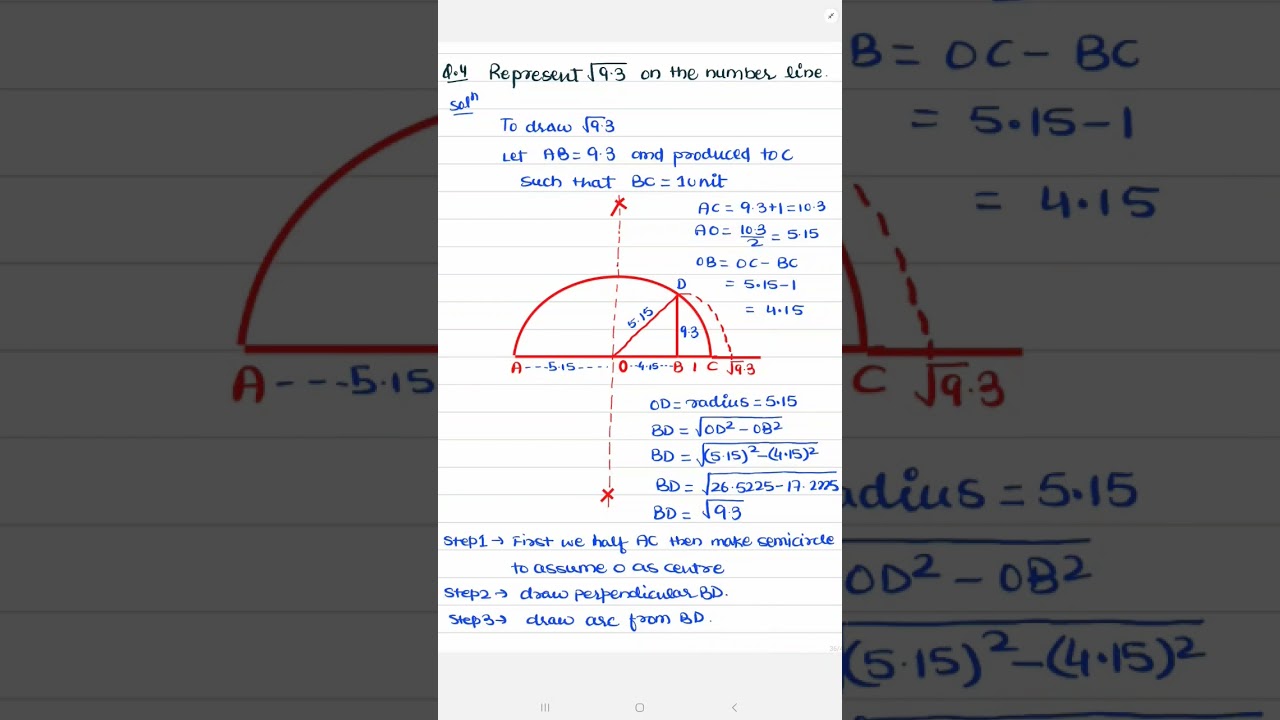 Q.4 Represent √9.3 on the number line.
Solⁿ
To draw √9.3
Let AB = 9.3 and produced to C
Such that BC = 1unit
AC = 9.3+1 = 10.3
AO = 10.3/2 = 5.15
OB = OC - BC
= 5.15-1
= 4.15
D
5.15
9.3
A ---5.15---- O --4.15--- B 1 C √9.3
OD = radius = 5.15
BD = √OD² - OB²
BD = √(5.15)² - (4.15)²
BD = √26.5225 - 17.2225
BD = √9.3
Step1 → First we half AC then make semicircle
to assume O as centre
Step2 → draw perpendicular BD.
Step3 → draw arc from BD.
A ---5.15
B = OC - BC
= 5.15-1
= 4.15
C √9.3
adius = 5.15
OD² - OB²
(5.15)² - (4.15)²